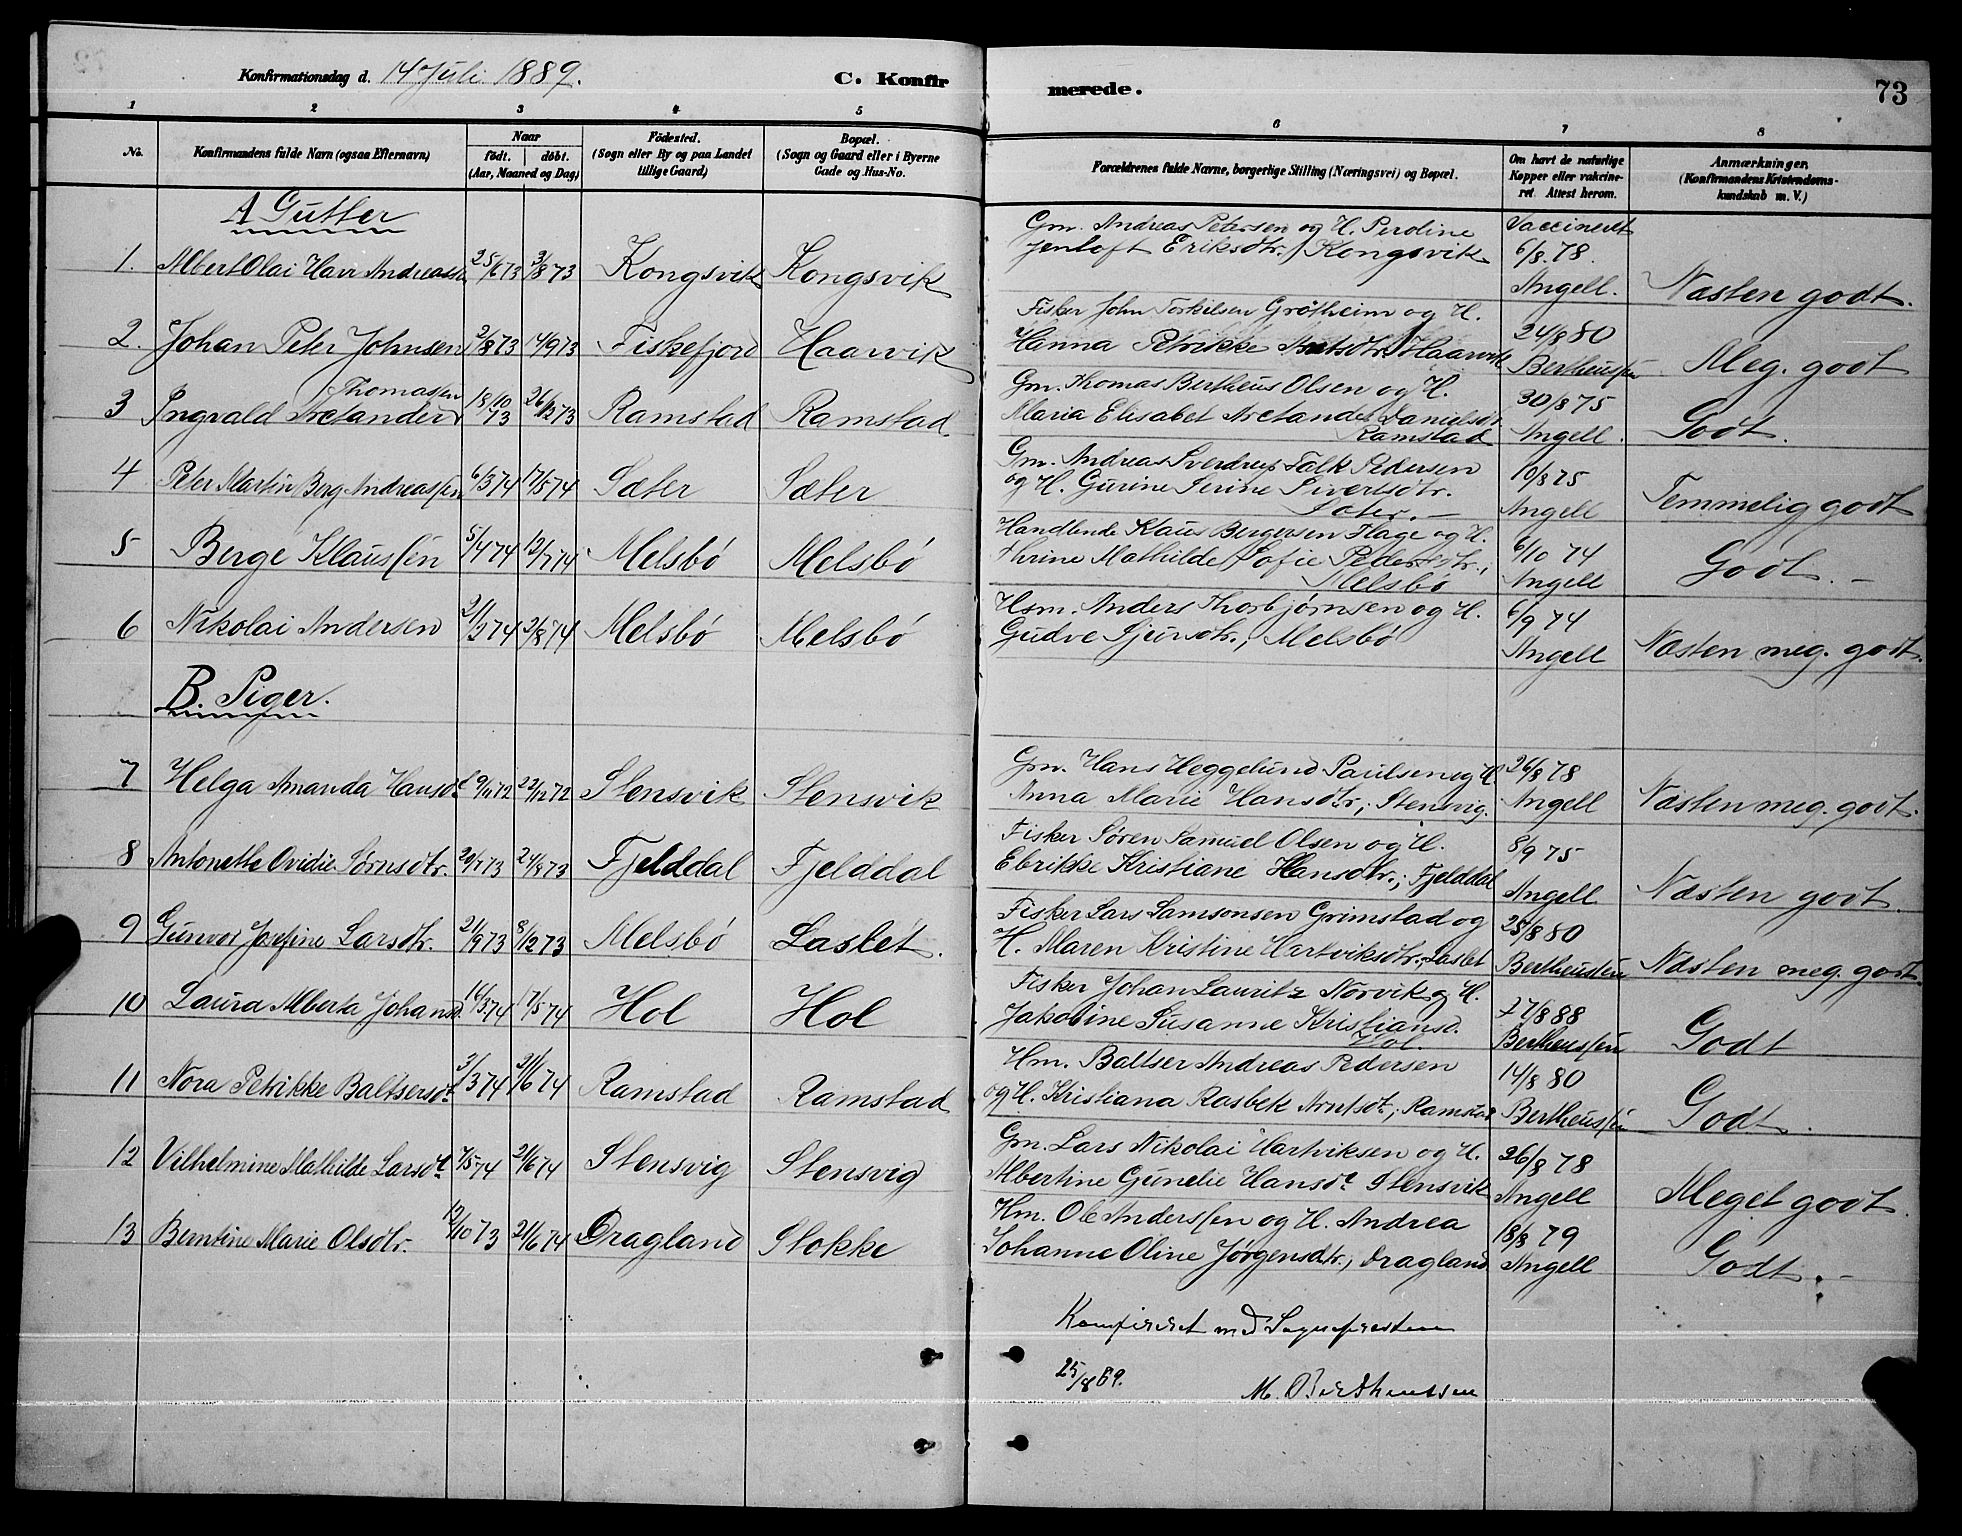 Konfirmationsdag d. 14 Juli 1889.
C. Konfirmerede.
73
1 2 3 4 5 6 7 8
No.
Konfirmandens fulde Navn (ogsaa Efternavn)
Naar
födt. döbt.
(Aar, Maaned og Dag)
Födested.
(Sogn eller By og paa Landet
tillige Gaard)
Bopæl.
(Sogn og Gaard eller i Byerne
Gade og Hus-No.
Forældrenes fulde Navne, borgerlige Stilling (Næringsvei) og Bopæl.
Om havt de naturlige
Kopper eller vakcine-
ret. Attest herom.
Anmærkninger.
(Konfirmandens Kristendoms-
kundskab m. V.)
A Gutter
1. Albert Olai Havr Andreassen 25/6 73 3/8 73 Kongsvik Kongsvik
Gm. Andreas Petersen og H. Peroline
Jentoft Eriksdtr. / Kongsvik
Vaccineret
6/8. 78.
Angell.
Næsten godt.
2. Johan Peter Johnsen 2/8 73 14/9 73 Fiskefjord Haarvik
Fisker John Torkilsen Grøtheim og H.
Hanna Petrikke Haarvik
24/8 80
Bertheussen
Meg. godt
3 Ingvald Aretander Thomassen 18/10 73 26/12 73 Ramstad Ramstad
Gm. Thomas Bertheus Olsen og H.
Maria Elisabet Aretander Danielsdtr
Ramstad
30/8 75
Angell.
Godt.
4 Peter Martin Berg Andreassen 6/3 74 17/5 74 Sæter Sæter
Gm. Andreas Sverdrup Falk Pedersen
og H. Gurine Serine Sivertsdtr.
Sæter. —
10/8 75
Angell
Temmelig godt
5 Berge Klaussen 5/4 74 12/7 74 Melsbö Melsbö
Handlende Klaus Bergersen Hage og H.
Thrine Mathilde Sofie Pedersdtr.,
Melsbö
6/10 74
Angell
Godt. —
6 Nikolai Andersen 21/2 74 2/8 74 Melsbö Melsbö
Hsm. Anders Thorbjørnsen og H.
Gudve Sjursdtr., Melsbö
6/9 74
Angell
Næsten meg. godt.
B. Piger.
7 Helga Amanda Hansdt 9/11 72 22/12 72 Stensvik Stensvik
Gm. Hans Heggelund Paulsen og H.
Anna Marie Hansdtr., Stensvig.
26/8 78
Angell
Næsten meg. godt.
8 Antonette Ovidie Sørnsdtr. 20/7 73 24/8 73 Fjelddal Fjelddal
Fisker Søren Samuel Olsen og H.
Ebrikke Kristiane Hansdtr.; Fjelddal
8/9 75
Angell
Næsten godt.
9 Gunvor Josefine Larsdtr. 21/9 73 8/12 73 Melsbö Laslet.
Fisker Lars Samsonsen Grimstad og
H. Maren Kristine Hartviksdtr., Laslet
28/8 80
Bertheussen
Næsten meg. godt.
10 Laura Alberta Johansd. 16/3 74 17/5 74 Hol Hol
Fisker Johan Lauritz Norvik og H.
Jakobine Susanne Kristiansd.
Hol.
27/8 88
Bertheussen
Godt
11 Nora Petrikke Baltsersdt 3/3 74 21/6 74 Ramstad Ramstad
Hm. Baltser Andreas Pedersen
og H. Kristiana Rasbek Arntsdt., Ramstad
14/8 80
Bertheussen
Godt.
12 Vilhelmine Mathilde Larsdt. 7/5 74 21/6 74 Stensvig Stensvig
Gm. Lars Nikolai Hartviksen og H.
Albertine Gunelie Hansdt. Stensvik
26/8 78
Angell
Meget godt.
13 Berntine Marie Olsdtr. 12/10 73 21/6 74 Dragland Stokke
Hm. Ole Anderssen og H. Andrea
Johanne Oline Jørgensdtr., Dragland
18/8 79
Angell
Godt. —
Konfereret med Sognepresten
25/8 89.
M. Bertheussen